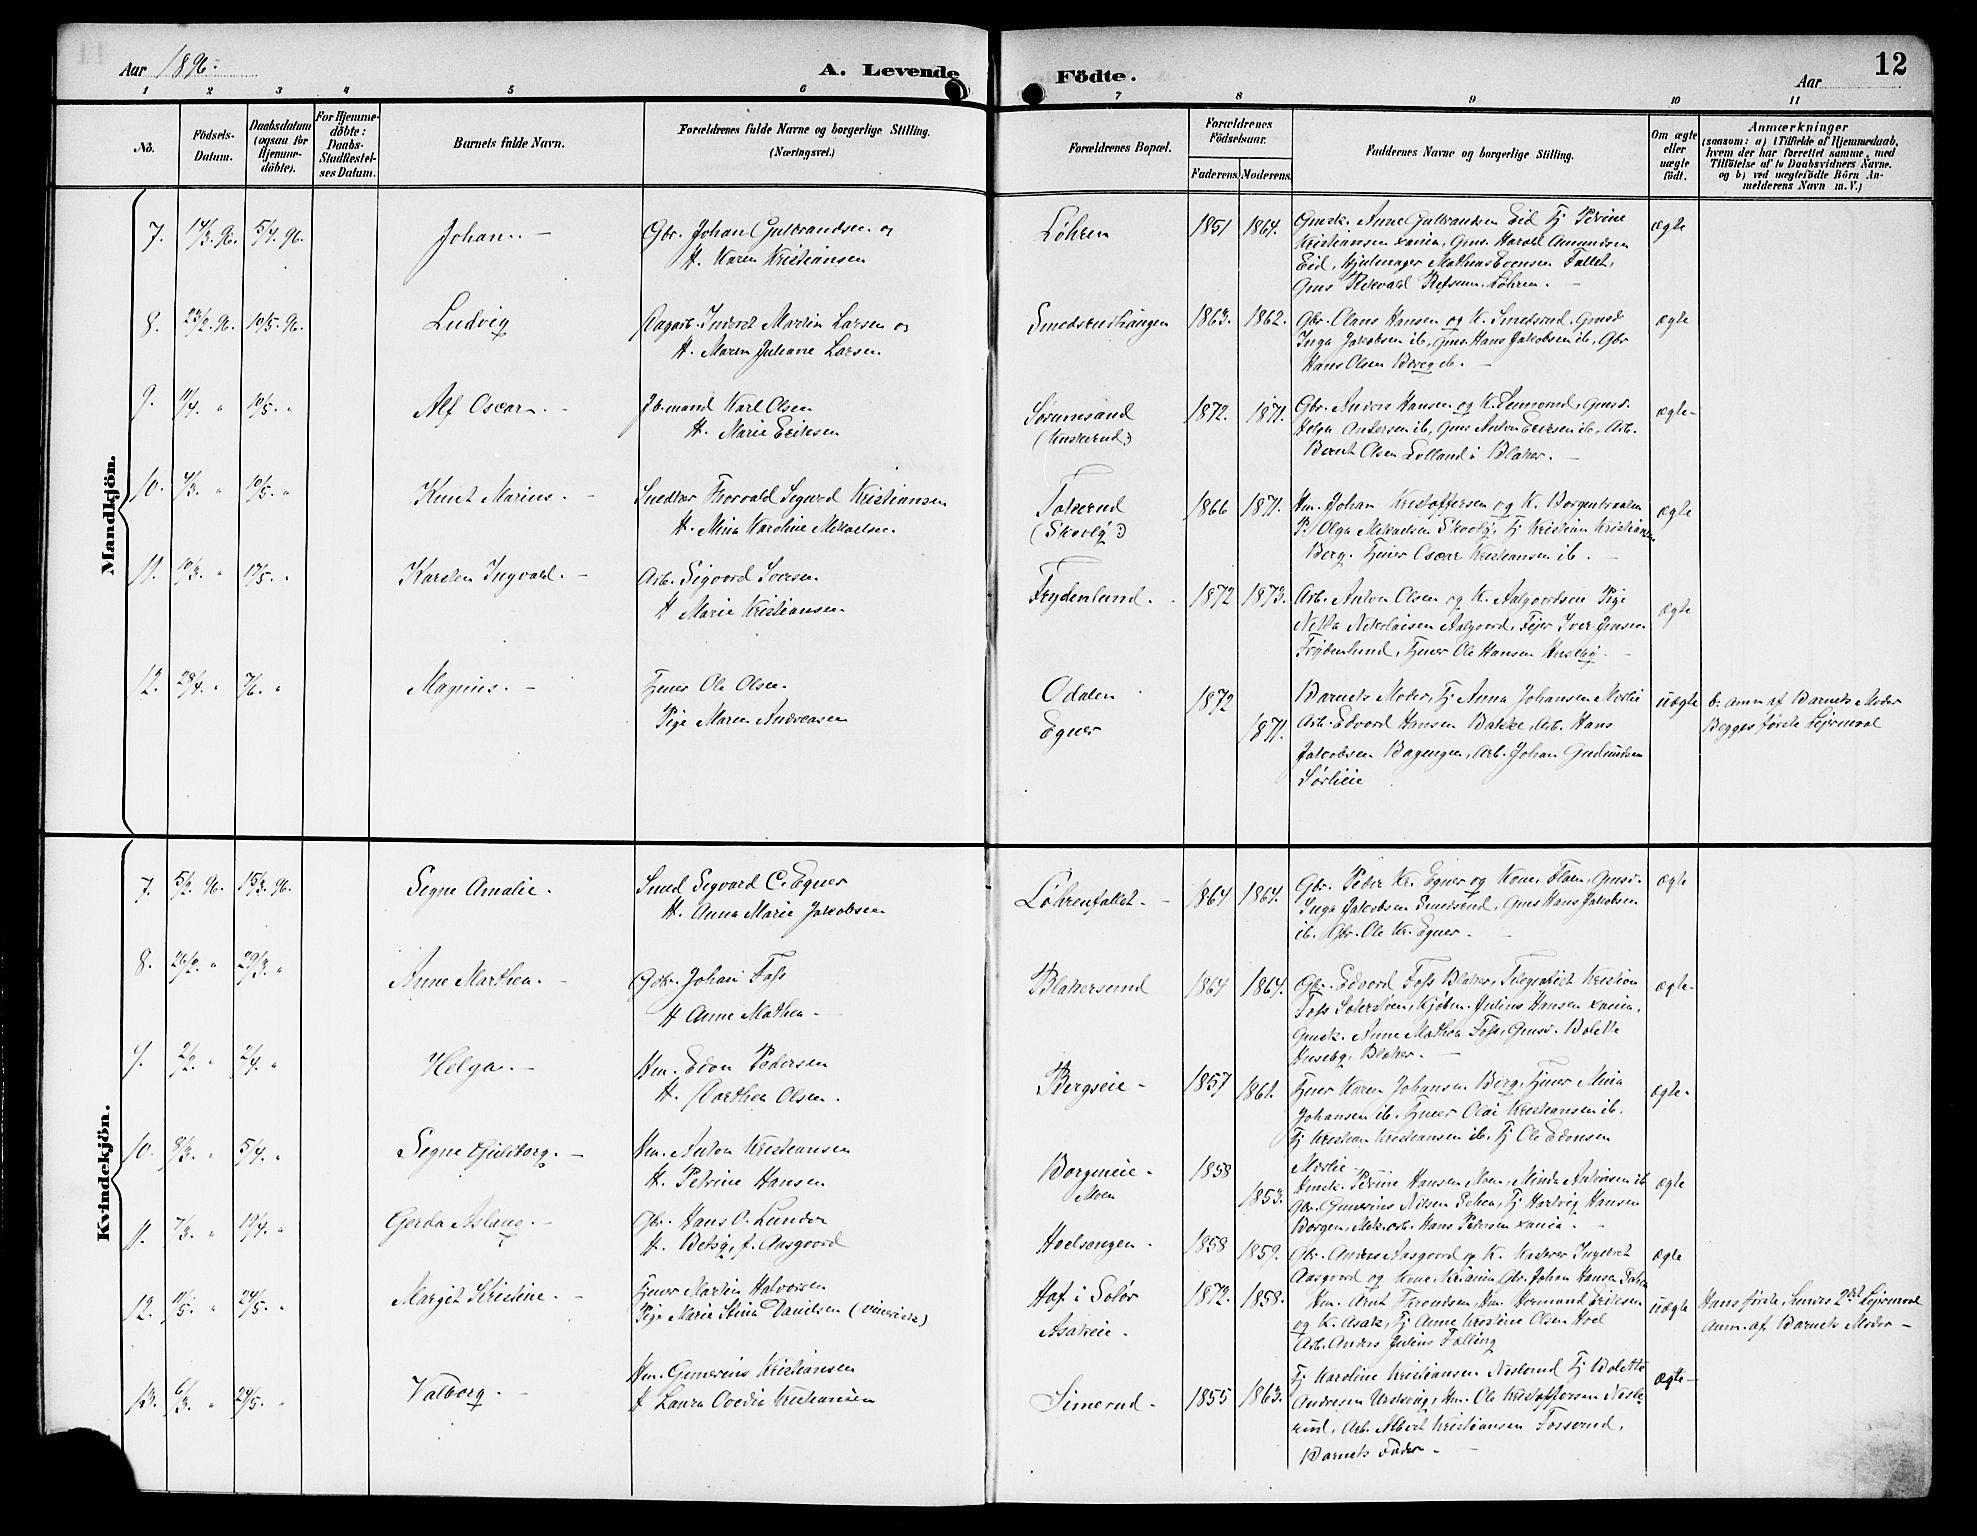 Aar 1896.
A. Levende Födte.
Aar
12
1 2 3 4 5 6 7 8 9 10 11
No.
Födsels-
Datum.
Daabsdatum
(ogsaa for
Hjemme-
döbte).
For Hjemme-
döbte:
Daabs-
Stadfæstel-
ses Datum.
Barnets fulde Navn.
Forældrenes fulde Navne og borgerlige Stilling.
(Næringsvei.)
Forældrenes Bopæl.
Forældrenes
Födselsaar.
Faderens. Moderens.
Faddernes Navne og borgerlige Stilling.
Om ægte
eller
uægte
födt.
Anmærkninger
(saasom: a) i Tilfælde af Hjemmedaab,
hvem der har forrettet samme, med
Tilföielse af to Daabsvidners Navne.
og b) ved uægtefödte Börn An-
melderens Navn m. V.)
Mandkjön.
7. 14/3. 96. 5/4. 96. Johan. –
Gbr. Johan Gulbrandsen og
H. Karen Kristiansen
Løhren 1851 1864.
Gmsk. Anne Gulbrandsen Eid, Tj Petrine
Kristiansen Xania, Gms. Harald Amundsen
Eid, Hjulmager Mathias Evensen Fallet,
Gms Refsum Løhren. –
ægte
8. 23/2. 96. 10/5. 96. Ludvig
Dagarb. Martin Larsen og
H. Maren Juliane Larsen
Smedsrudhaugen 1863. 1862.
Gbr. Claus Hansen og K. Smedsrud, Gmsd
Inga Jakobsen ib, Gms. Hans Jakobsen ib, Gbr
Hans Olsen Berg ib. –
ægte
9. 11/4. " 10/5. " Alf Oscar. –
Jb.mand Karl Olsen
H. Marie Eriksen
Sørumsand
1872. 1871.
Gbr. Anders Hansen og K. Gmsd.
Helga Andersen ib, Gms Anton Eriksen ib, Arb.
Bernt Olsen Lolland i Blaker. –
ægte –
10. 4/3. " 10/5. " Knut Marius. –
Snedker Thorvald Sigurd Kristiansen
H. Mina Karoline Mikaelsen
Tokerud
(Skovly:)
1866 1871.
Hm. Johan Kristoffersen og K. Borgenbraaten
P. Olga Mikaelsen Skovly, Tj Kristian Kristiansen
Berg. Tjener Oscar Kristiansen ib. –
ægte
11. 10/3. " 17/5. " Karsten Ingvald. –
Arb. Sigvard Iversen
H Marie Kristiansen
Frydenlund. 1872 1873.
Arb. Anton Olsen og K. Aalgaardseie Pige
Nikolaisen Aalgaard, Iver Jensen
Frydenlund, Tjener Ole Hansen –
ægte
12. 28/4. " 7/6. " Magnus. –
Tjener Ole Olsen.
Pige Maren Andreasen
Odalen
Egner
1872
1871.
Barnets Moder, Tj Anna Johansen Mørlie
Arb. Edvard Hansen Bakke, Arb. Hans
Jakobsen Bagengen, Arb. Johan Gudmundsen
Sørlieie
uægte
b. Anm. af Barnets Moder
Begges første Leiermaal
Kvindekjön.
7. 5/2. 96. 15/3. 96. Signe Amalie. –
Smed Sigvard C. Egner
H. Anna Marie Jakobsen
Løhrenfallet. – 1864 1864.
Gbr. Peder Kr. Egner og Kone, Gmsd.
Inga Jakobsen Smedsrud, Gms Hans Jakobsen
ib. Gbr. Ole Kr. Egner. –
ægte
8. 26/2. " 29/3. " Anne Marthea. –
Gbr. Johan Foss
H Anne Mathea –
Blakersund 1864 1864.
Gbr. Edvard Foss Blaker, Telegrafist Kristian
Foss Kjøbm. Julius Hansen Xania,
Gmsk. Anne Mathea Foss, Gmsd. Bolette
Huseby, Blaker. –
ægte –
9. 2/2. " 2/4. " Helga. –
Hm. Edon Pedersen
H. Marthea Olsen.
Bergseie – 1857 1861.
Tjener Karen Johansen Berg, Tjener Mina
Johansen ib. Tjener Olai Kristiansen ib,
Tj Kristian Kristiansen ib, Tj Ole Edonsen
Mørlie –
ægte –
10. 8/3. " 5/4. " Signe Guldborg. –
Hm. Anton Kristiansen
H. Petrine Hansen
Borgeneie –
Moen
1858
1853.
Hmsk. Petrine Hansen Moen, Minda Antonsen ib
Gbr. Gunerius Nilsen Tj Hartvig Hansen
Borgen, Mek. arb. Hans Petersen Xania. –
ægte
11. 7/3. " 19/4. " Gerda Aslaug. –
Gbr. Hans O. Lunder
H. Betsy, f. Aasgaard
Hoelsengen. – 1858 1859.
Gbr. Anders Aasgaard og K. Ingebret
Aasgaard og Kone Gbr. Johan Hansen
ægte
12. 10/5. " 24/5. " Margit Kristine. –
Tjener Martin Halvorsen
Pige Marie Stina Danielsen
Hof i Solør
Asakeie. –
1872. 1858.
Hm. Arnt Trondsen, Hm. Hermand Eriksen
og K. Asak, Tj Anne Kristine Olsen Hoel
Arb. Anders Julius Følling
uægte
Hans første, hendes 2det Leiermaal
Anm. af Barnets Moder –
13. 6/3. " 24/5. " Valborg. –
Hm. Gunerius Kristiansen
H Laura Ovedia Kristiansen
Simerud. – 1855 1863.
Tj Karoline Kristiansen Tj Bolette
Andresen Hm. Ole Kristoffersen Neste-
rud, Arb. Albert Kristiansen Fossrud,
Barnets Fader –
ægte –